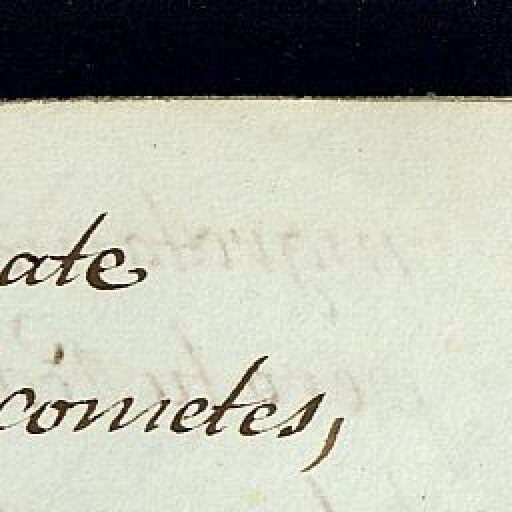 ate
cometes,